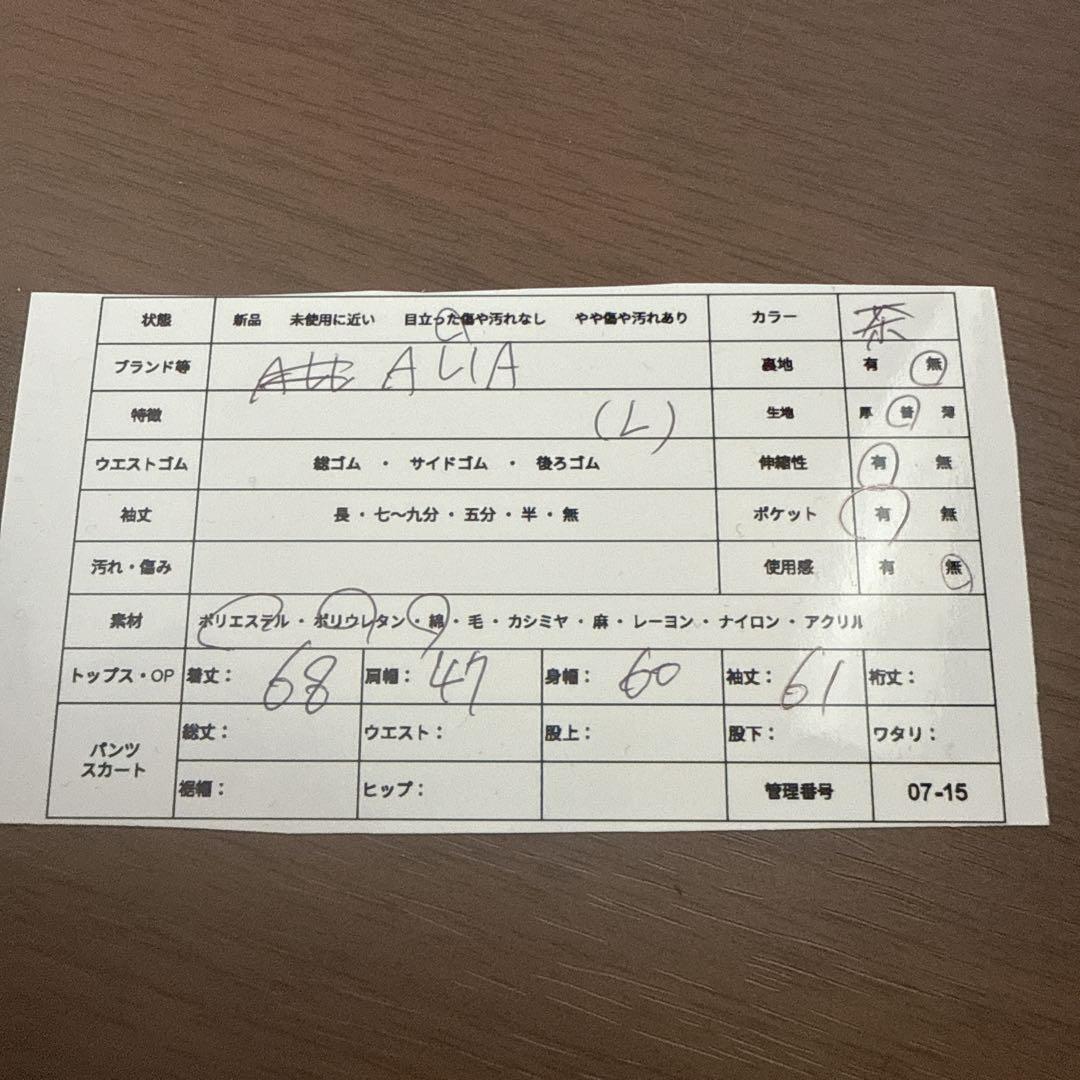 状態 新品 未使用に近い 目立った傷や汚れなし やや傷や汚れあり カラー 茶
ブランド等 ALIA 裏地 有 無
特徴 (L) 生地 厚 普 薄
ウエストゴム 総ゴム ・ サイドゴム ・ 後ろゴム 伸縮性 有 無
袖丈 長・七〜九分・五分・半・無 ポケット 有 無
汚れ・傷み 使用感 有 無
素材 ポリエステル・ポリウレタン・綿・毛・カシミヤ・麻・レーヨン・ナイロン・アクリル
トップス・OP 着丈： 68 肩幅： 47 身幅： 60 袖丈： 61 裄丈：
パンツ
スカート
総丈： ウエスト： 股上： 股下： ワタリ：
裾幅： ヒップ： 管理番号 07-15